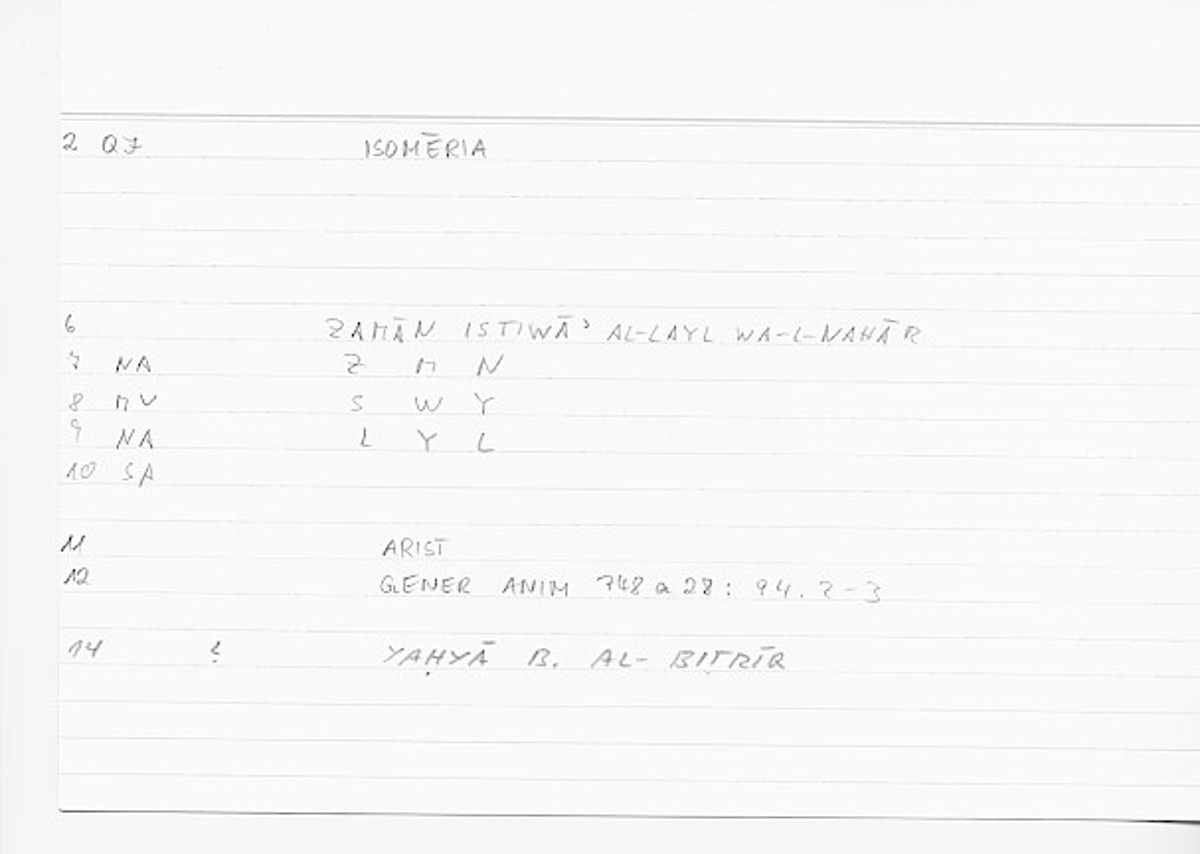 2 QF ISOMĒRIA
6 ZAMĀN ISTIWĀʾ AL-LAYL WA-L-NAHĀR
7 NA Z M N
8 MV S W Y
9 NA L Y L
10 SA
11 ARIST
12 GENER ANIM 748 a 28 : 94. 2-3
14 YAḤYĀ B. AL-BIṬRĪQ